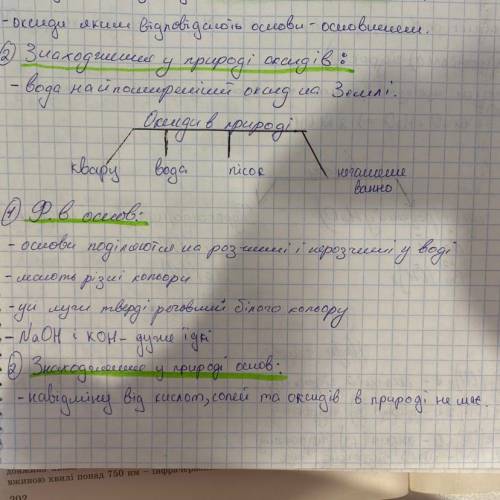 -оксиди яким відповідають основи-основними.
2) Знаходження у природі оксидів:
- вода найпоширеніший оксид на Землі.
Оксиди в природі
кварц вода пісок негашене
вапно
1) Ф.в основ:
- основи поділяються на розчинні і нерозчинні у воді
- мають різні кольори
- усі луги тверді речовини білого кольору
- NaOH і KOH - дуже їдкі
2) Знаходження у природі основ:
- навідміну від кислот, солей та оксидів в природі не має.
вжиною хвилі понад 750 нм – інфрачерв
202